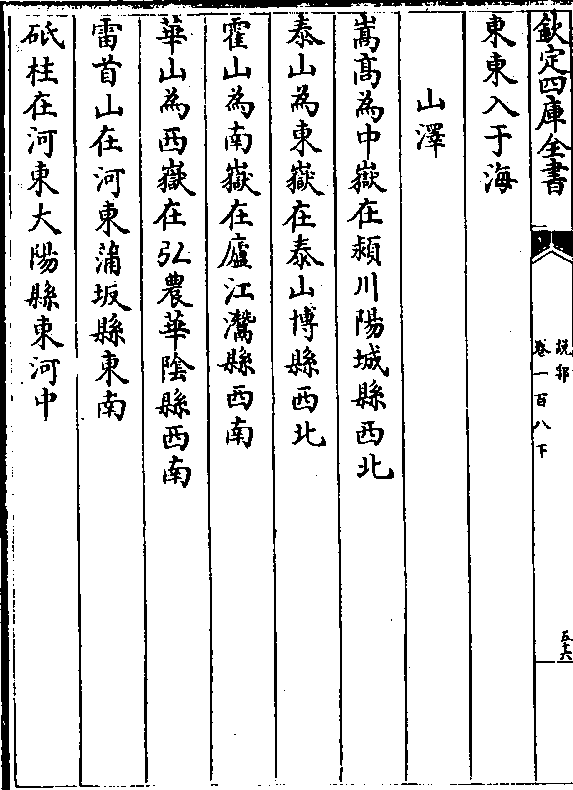 欽定四庫全書
説郛
卷一百八下
五十六
東東入于海
山澤
嵩髙為中嶽在潁川陽城縣西北
泰山為東嶽在泰山博縣西北
霍山為南嶽在廬江灊縣西南
華山為西嶽在弘農華隂縣西南
雷首山在河東蒲坂縣東南
砥柱在河東大陽縣東河中